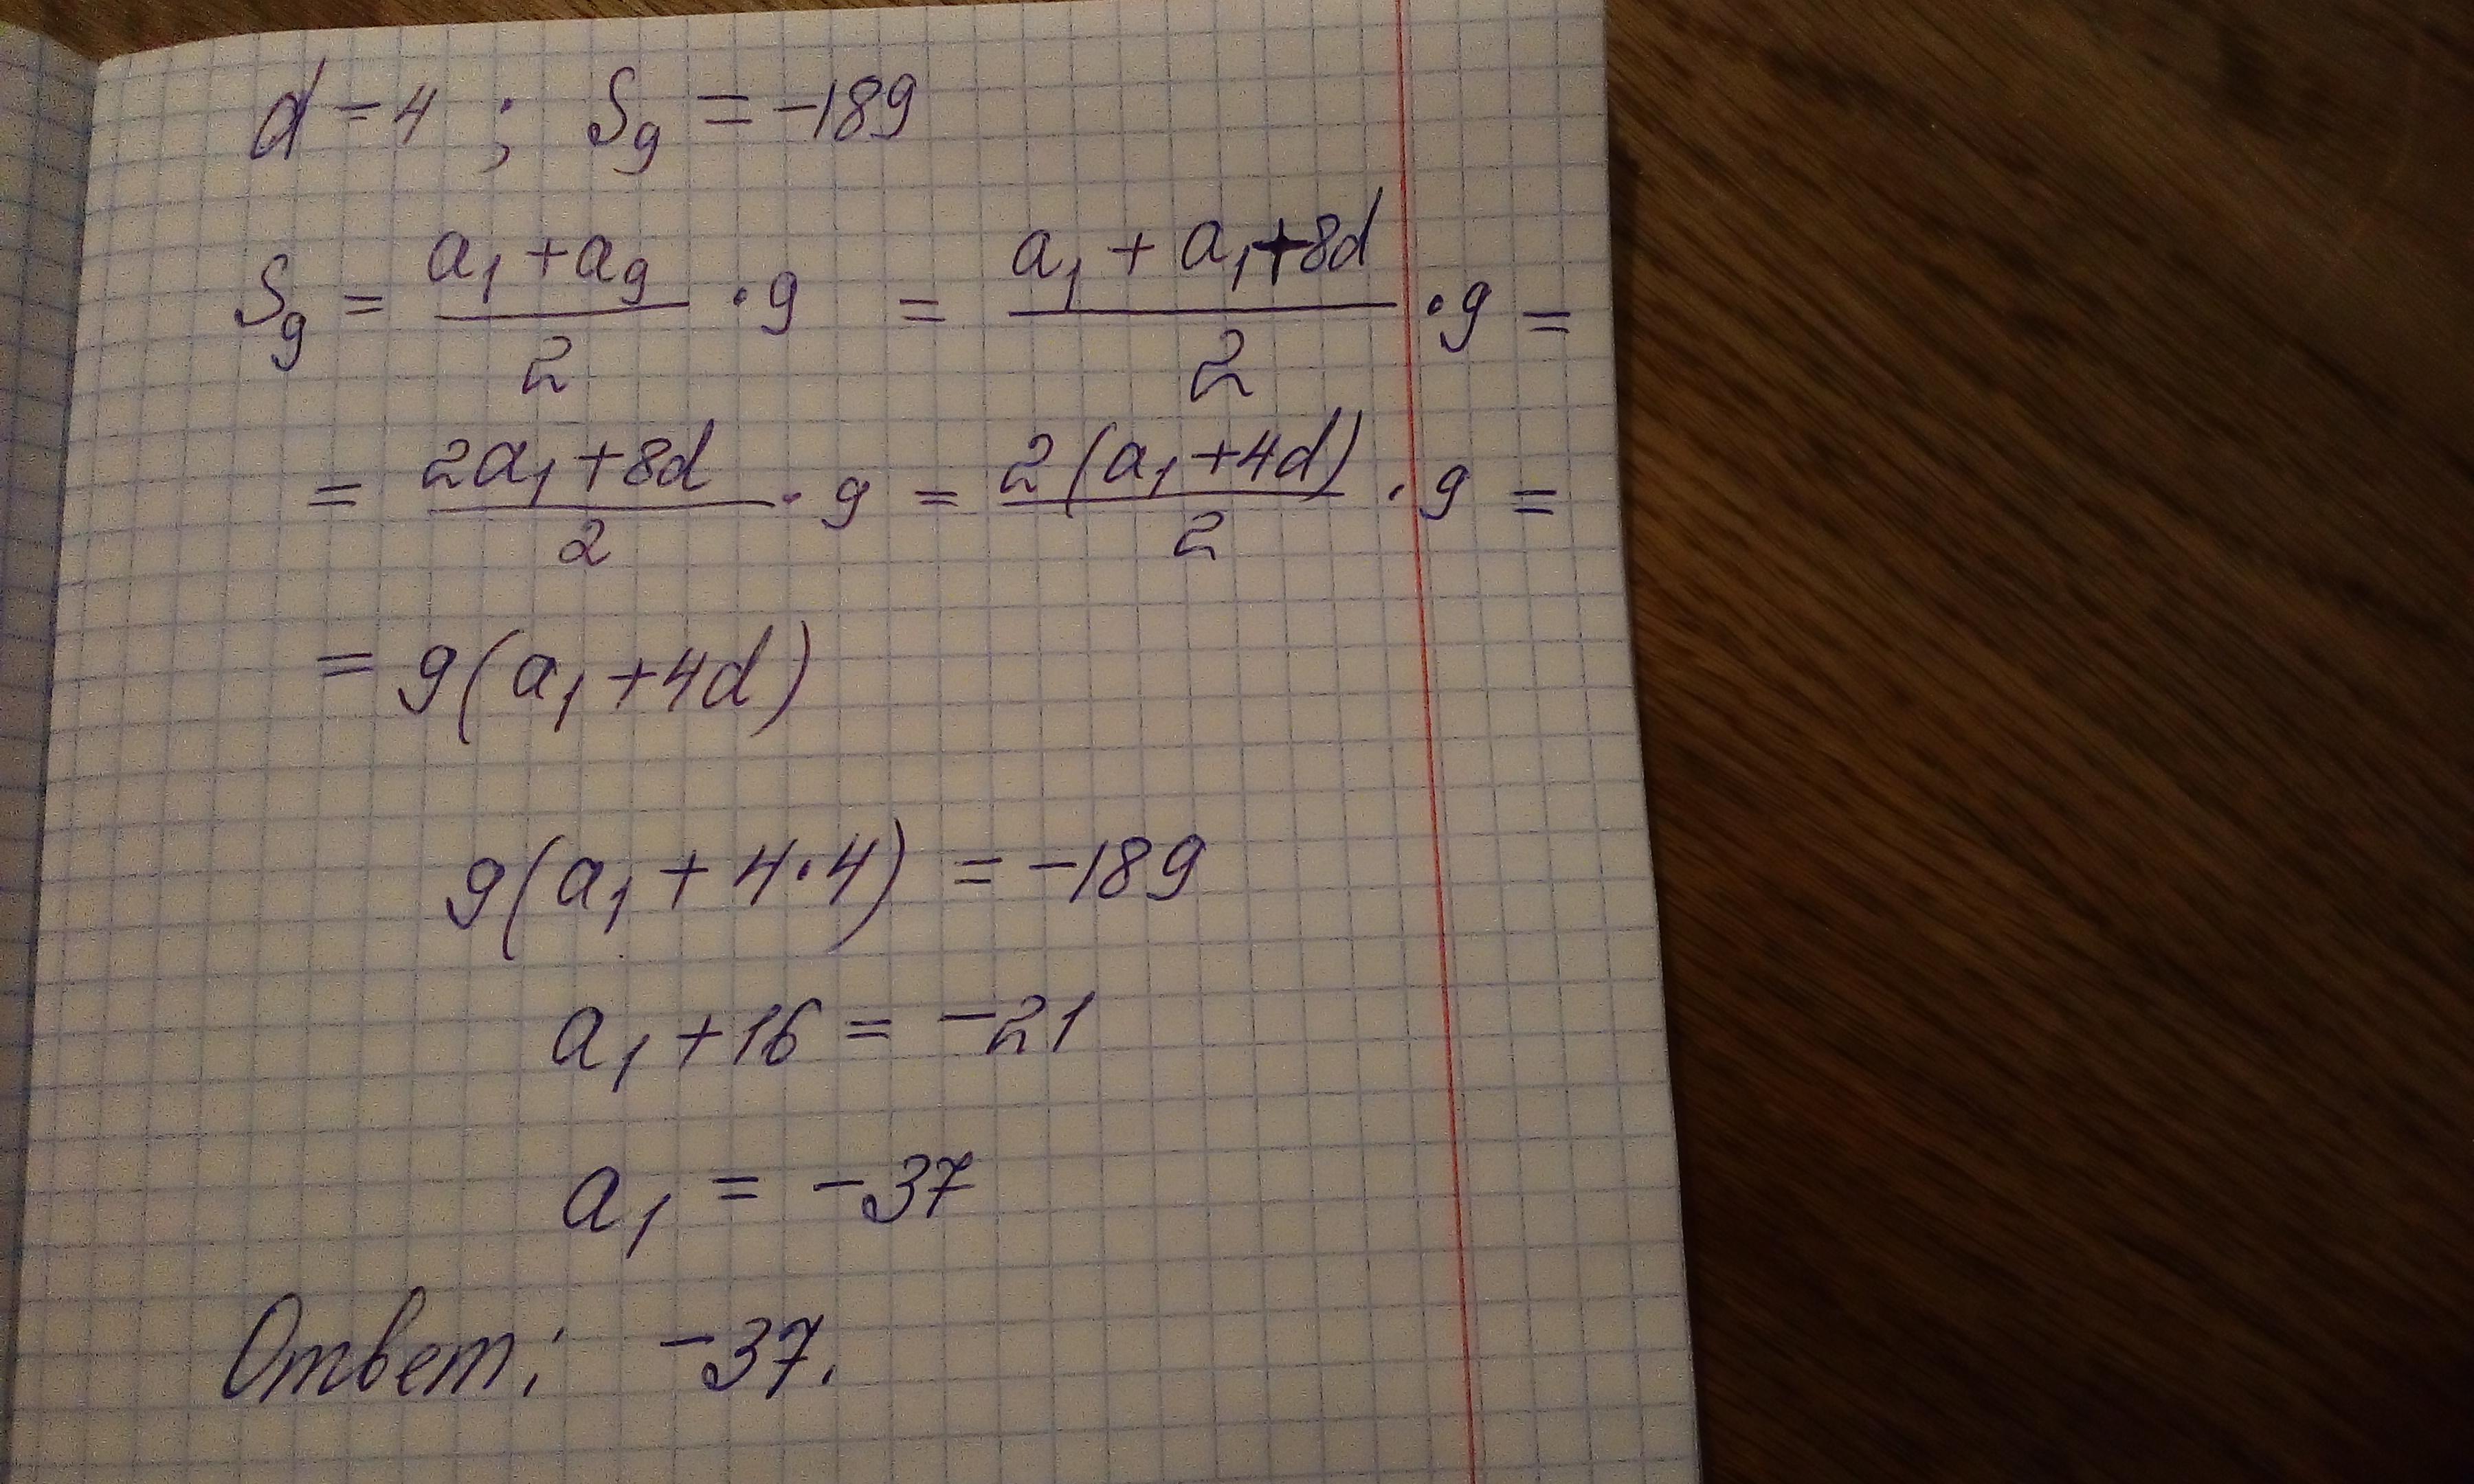 d = 4 ; S₉ = -189
S₉ = (a₁ + a₉)/2 · 9 = (a₁ + a₁ + 8d)/2 · 9 =
= (2a₁ + 8d)/2 · 9 = 2(a₁ + 4d)/2 · 9 =
= 9(a₁ + 4d)
9(a₁ + 4·4) = -189
a₁ + 16 = -21
a₁ = -37
Ответ: -37.